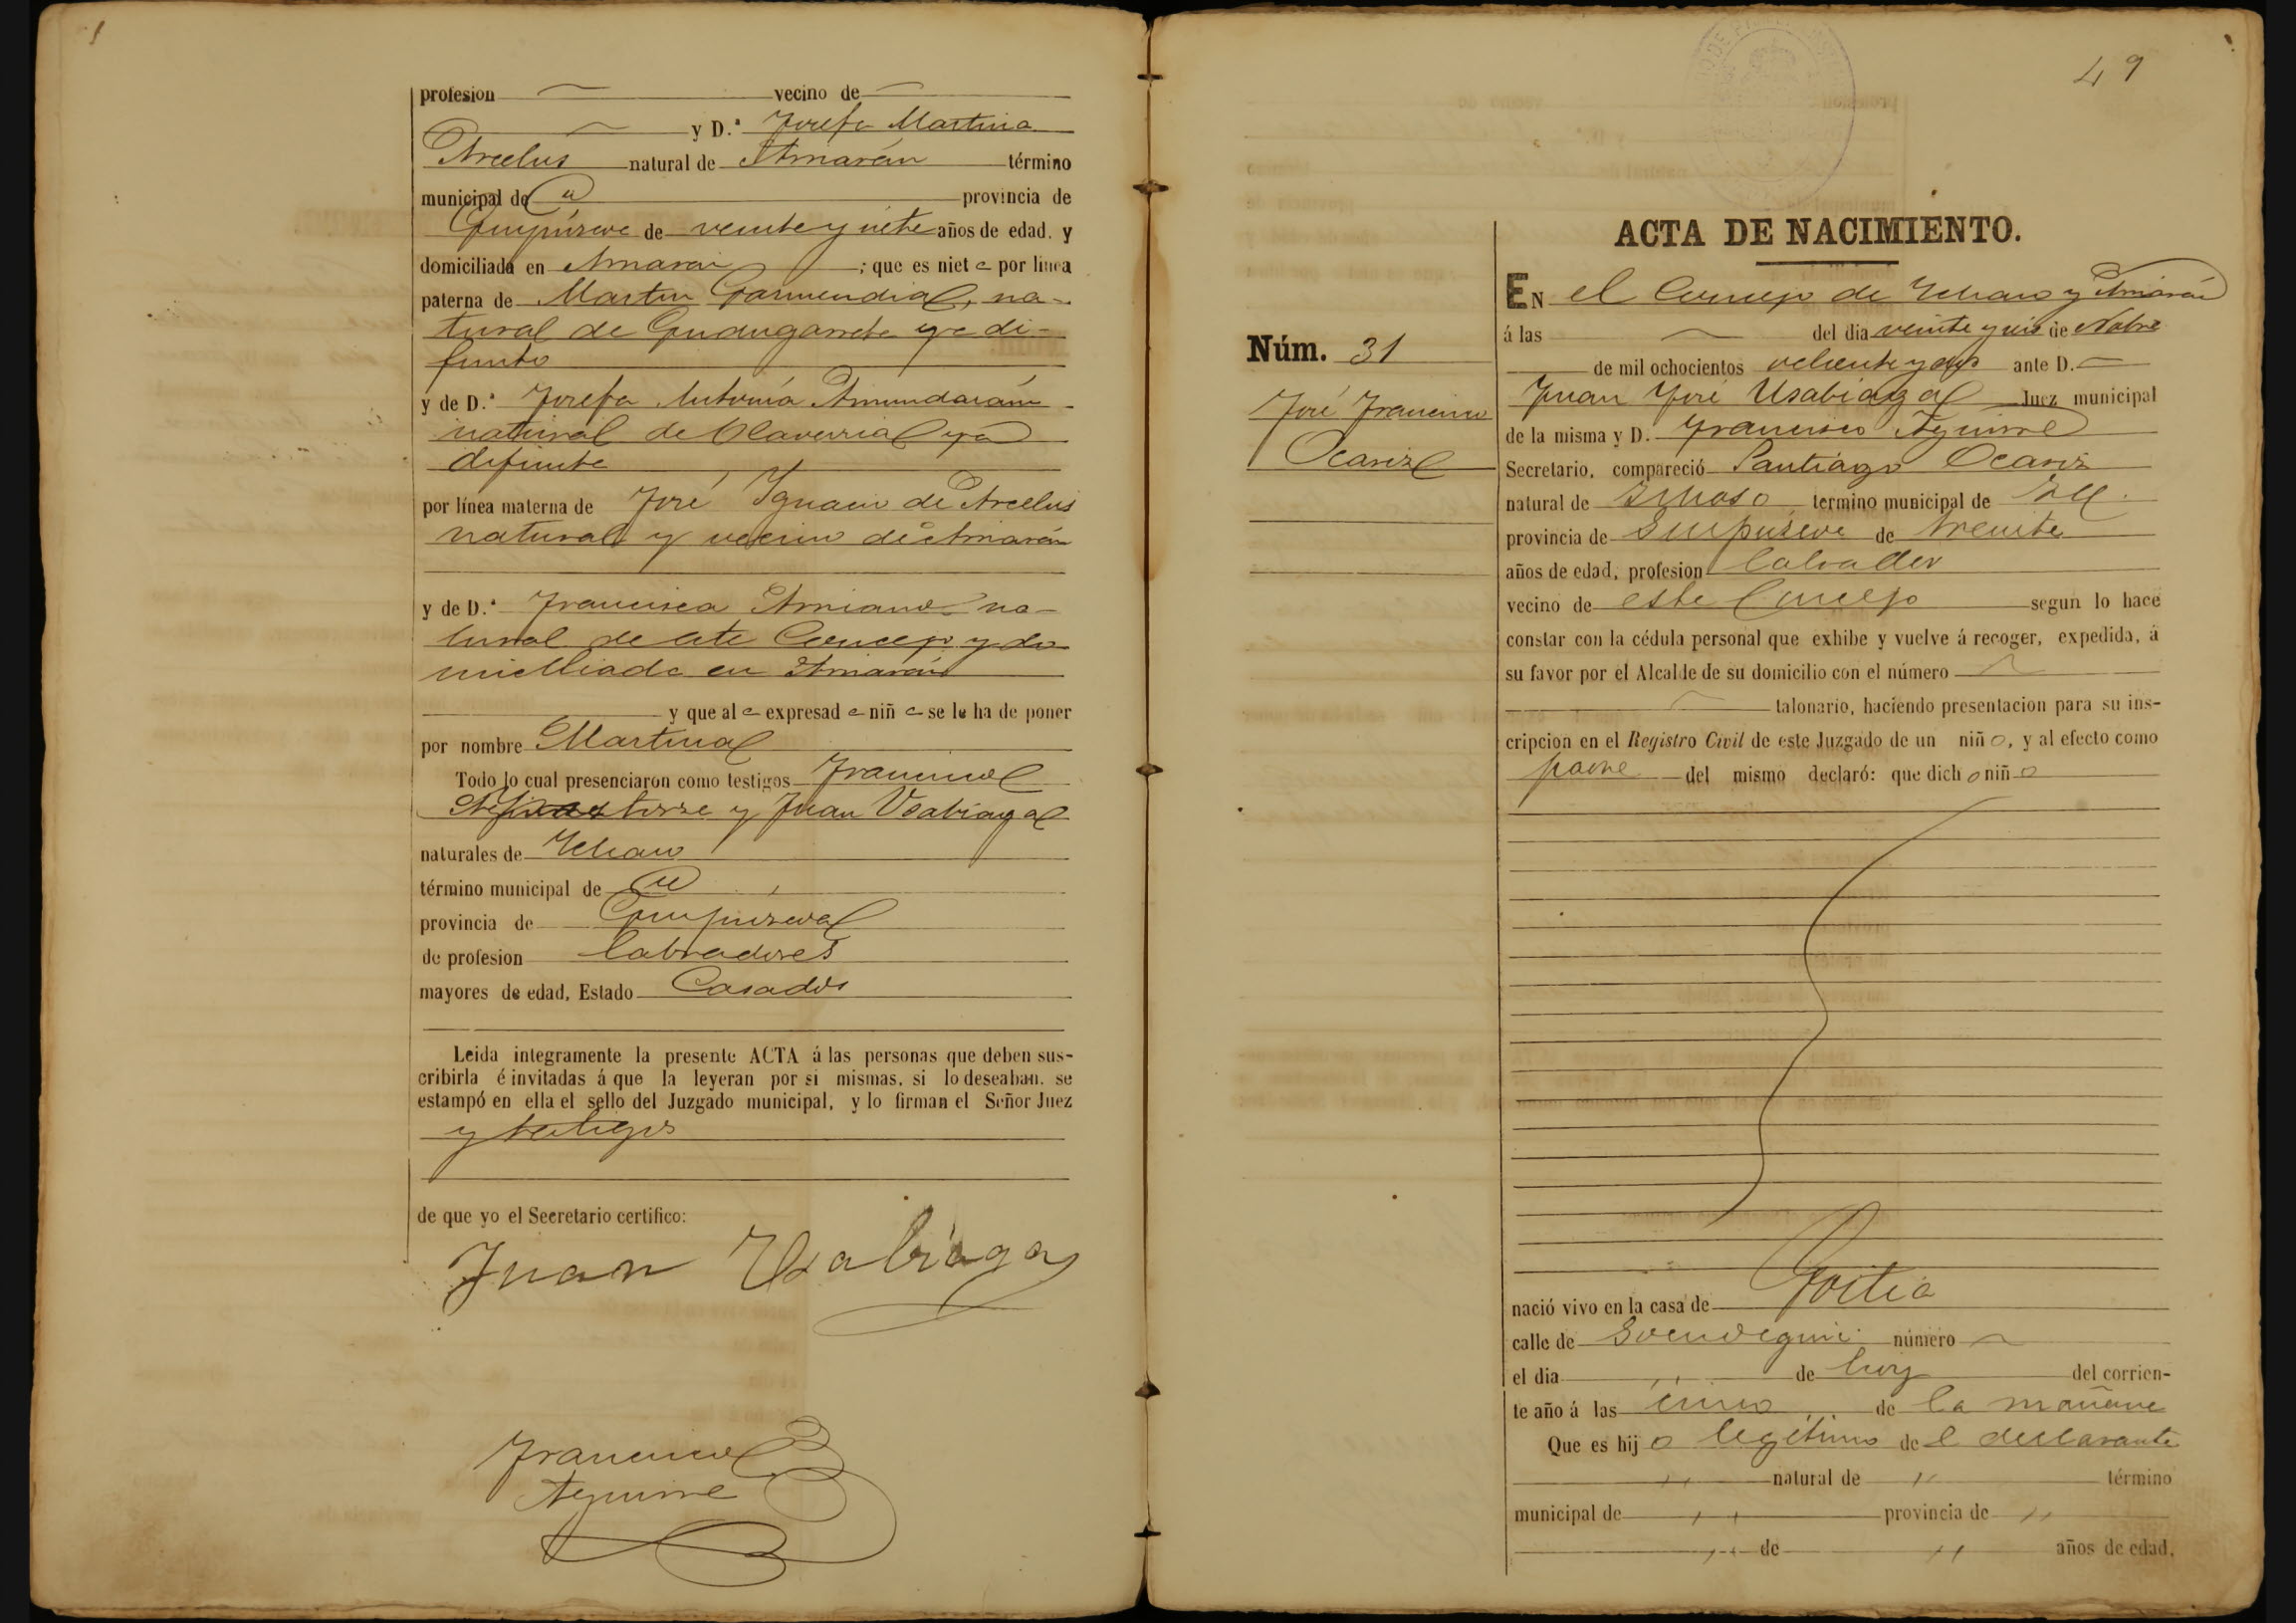 profesion vecino de
y D.ª Josefa Martina
Arcelus natural de Amarán término
municipal de id provincia de
Guipúzcoa de veinte y siete años de edad. y
domiciliada en Amaran ; que es niet a por linea
paterna de Martin Garmendia, na-
tural de Gudugarreta ya di-
funto
y de D.ª Josefa Antonia Amundaráin
natural de Olaverria ya
difunta
por línea materna de José Ignacio de Arcelus
natural y vecino de Amarán
y de D.ª Francisca Amiano na-
tural de este Concejo y do-
micilliada en Amarán
y que al a expresad a niñ a se le ha de poner
por nombre Martina
Todo lo cual presenciaron como testigos Francisco
torre y Juan Usabiaga
naturales de Ichaso
término municipal de id
provincia de Guipúzcoa
de profesion labradores
mayores de edad, Estado Casados
Leida integramente la presente ACTA á las personas que deben sus-
cribirla é invitadas á que la leyeran por si mismas, si lo deseaban, se
estampó en ella el sello del Juzgado municipal, y lo firman el Señor Juez
y testigos
de que yo el Secretario certifico:
Juan Usabiaga
Francisco
Aguirre
49
ACTA DE NACIMIENTO.
Núm. 31
José Francisco
Ocariz
EN el Concejo de Ichaso y Amarán
á las del dia veinte y seis de Nobre
de mil ochocientos ochenta y dos ante D.
Juan José Usabiaga Juez municipal
de la misma y D. Francisco Aguirre
Secretario, compareció Santiago Ocariz
natural de Ichaso termino municipal de id
provincia de Guipuzcoa de treinta
años de edad, profesion labrador
vecino de este Concejo segun lo hace
constar con la cédula personal que exhibe y vuelve á recoger, expedida, á
su favor por el Alcalde de su domicilio con el número
talonario, haciendo presentacion para su ins-
cripcion en el Registro Civil de este Juzgado de un niñ o, y al efecto como
padre del mismo declaró: que dich o niñ o
nació vivo en la casa de Goitia
calle de número
el dia ,, de hoy del corrien-
te año á las cinco de la mañana
Que es hij o legítimo de l declarante
,, natural de ,, término
municipal de ,, provincia de ,,
,, de ,, años de edad,